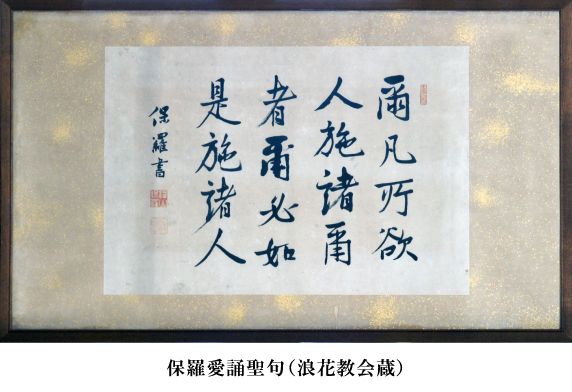 爾凡所欲
人施諸爾
者爾必如
是施諸人
保羅書
保羅愛誦聖句（浪花教会蔵）